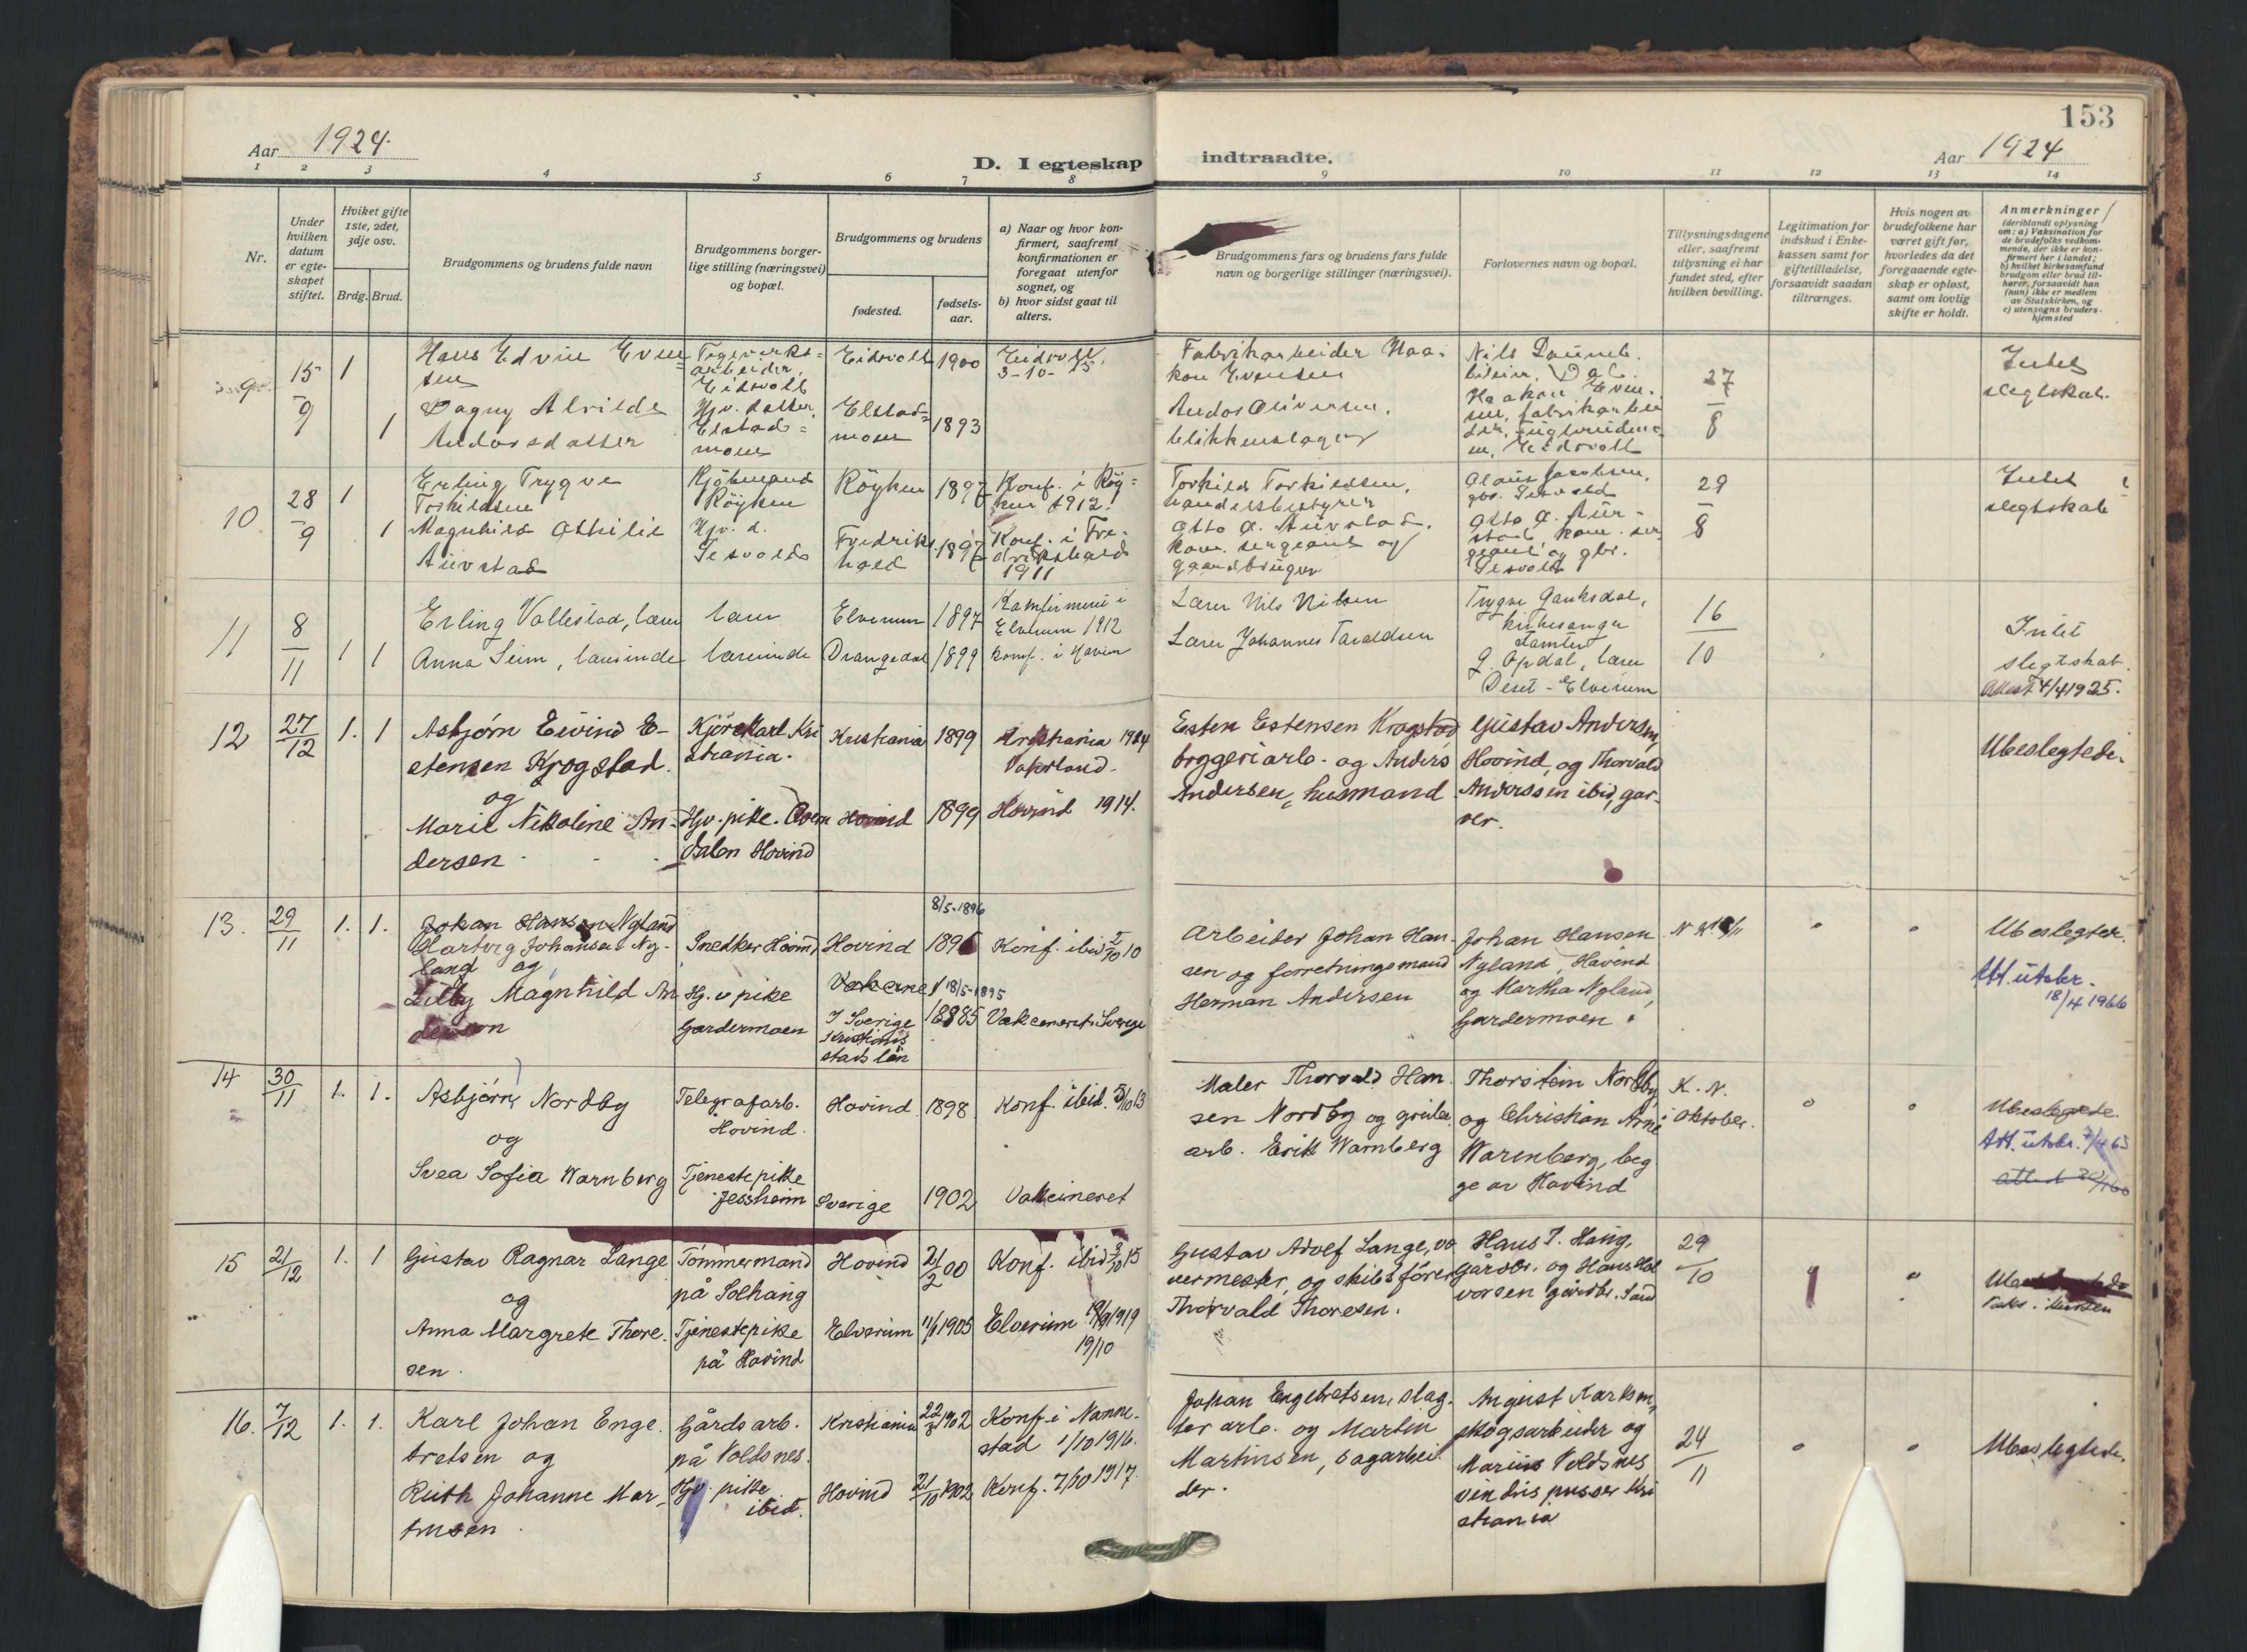 153
Aar 1924.
D. I egteskap indtraadte.
Aar 1924
1 2 3 4 5 6 7 8 9 10 11 12 13 14
Nr.
Under hvilken datum er egteskapet stiftet.
Hviket gifte 1ste, 2det, 3dje osv.
Brdg. Brud.
Brudgommens og brudens fulde navn
Brudgommens borgerlige stilling (næringsvei) og bopæl.
Brudgommens og brudens
fødested.
fødselsaar.
a) Naar og hvor konfirmert, saafremt konfirmationen er foregaat utenfor sognet, og
b) hvor sidst gaat til alters.
Brudgommens fars og brudens fars fulde navn og borgerlige stillinger (næringsvei).
Forlovernes navn og bopæl.
Tillysningsdagene eller, saafremt tillysning ei har fundet sted, efter hvilken bevilling.
Legitimation for indskud i Enkekassen samt for giftetilladelse, forsaavidt saadan tiltrænges.
Hvis nogen av brudefolkene har været gift før, hvorledes da det foregaaende egteskap er opløst, samt om lovlig skifte er holdt.
Anmerkninger (deriblandt oplysning om: a) Vaksination for de brudefolks vedkommende, der ikke er konfirmert her i landet; b) hvilket kirkesamfund brudgom eller brud tilhører, forsaavidt han (hun) ikke er medlem av Statskirken, og c) utensogns bruders hjemsted
9 15/9 1
Hans Edvin Evensen
arbeider, Eidsvoll
Eidsvoll 1900
Eidsvoll 3-10-15
Fabrikarbeider Haakon Evensen
Nils
Haakon Evensen, fabrikarbeider
Eidsvoll
27/8
Intet slegtskab.
1 Dagny Alvilde Andorsdatter
Hjv. datter, Elstadmoen
Elstadmoen 1893
Andor Oliversen, blikkenslager
10 28/9 1
Erling Trygve Torkildsen
Kjøbmand Röyken
Röyken 1897
Konf. i Röyken 1912.
Torkild Torkildsen, handelsbestyrer
Olaus Jacobsen, gbr. Jesvold
29/8
Intet slegtskab
1 Magnhild Othilie Aurstad
Hjv. d. Jesvold
Fredrikshald 1897
Konf. i Fredrikshald 1911
Otto A. Aurstad, kom. sergeant og gaardbruger
Otto A. Aurstad, kom. sergeant og gbr. Jesvold
11 8/11 1 1
Erling Vallestad, lærer
lærer
Elverum 1897
Konfirmeret i Elverum 1912
Lærer Nils Nilsen
Trygve Gauksdal, kirkesanger
16/10
Intet slegtskab.
Attest 4/4 1925.
Anna Seim, lærerinde
lærerinde
Drangedal 1899
Konf. i
Lærer Johannes Taraldsen
G. Opdal, lærer
Deset - Elverum
12 27/12 1. 1
Asbjørn Eivind Estensen Krogstad.
og
Kjörekarl Kristiania.
Kristiania 1899
Kristiania 1914
Vaterland.
Esten Estensen Krogstad bryggeriarb. og Anders Andersen, husmand
Gustav Andersen, Hovind, og Thorvald Anderssen ibid, garver.
Ubeslegtede.
Marie Nikoline Andersen
Hjv. pike. Hovind
Hovind 1899
Hovind 1914.
13. 29/11 1. 1.
Johan Hansen Nyland
Johansen Nyland og
Snedker Hovind
Hovind
8/5-1896
1896
Konf. ibid 2/10 10
Arbeider Johan Hansen og forretningsmand Herman Andersen
Johan Hansen Nyland, Hovind og Martha Nyland, Gardermoen
Ubeslegtet.
Att. utskr. 18/4 1966
Lilly Magnhild Anderson
Hj. v pike Gardermoen
I Sverige Kristianstads län
18/5-1895
1885
Vakcineret i Sverige
14 30/11 1. 1.
Asbjörn Nordby
og
Telegrafarb. Hovind.
Hovind 1898
Konf. ibid. 5/10 13
Maler Thorvald Hansen Nordby og arb. Erik Warnberg
Thorstein Nordby og Christian Arne Warenberg, begge av Hovind
K. N. i Oktober.
Ubeslegtede.
Att. utskr. 7/4 65
Svea Sofia Warnberg
Tjenestepike Jessheim
Sverige 1902
Vakcineret
15 21/12 1. 1
Gustav Ragnar Lange
og
Tömmermand på Solhaug
Hovind 21/2 00
Konf. ibid 3/10 15
Gustav Adolf Lange, vævermester, og skibsförer Thorvald Thoresen.
Hans J. Haug, Gårdbr. og Hans Halvorsen gårdbr. Sand
29/10
Anna Margrete Thoresen.
Tjenestepike på Hovind
Elverum 1905
Elverum 1919
19/10
16. 7/12 1. 1.
Karl Johan Engebretsen og
Gårdsarb. på Voldsnes.
Kristiania 22/3 1902
Konf. i Nannestad 1/10 1916.
Johan Engebretsen, slagter arb. og Martin Martinsen, sagarbeider.
August Karlsen, skogsarbeider og Marius Voldsnes vinduspusser Kristiania
24/11
Ubeslegtede.
Ruth Johanne Martinsen.
Hjv. pike ibid.
Hovind 21/10 1902
Konf. 7/10 1917.